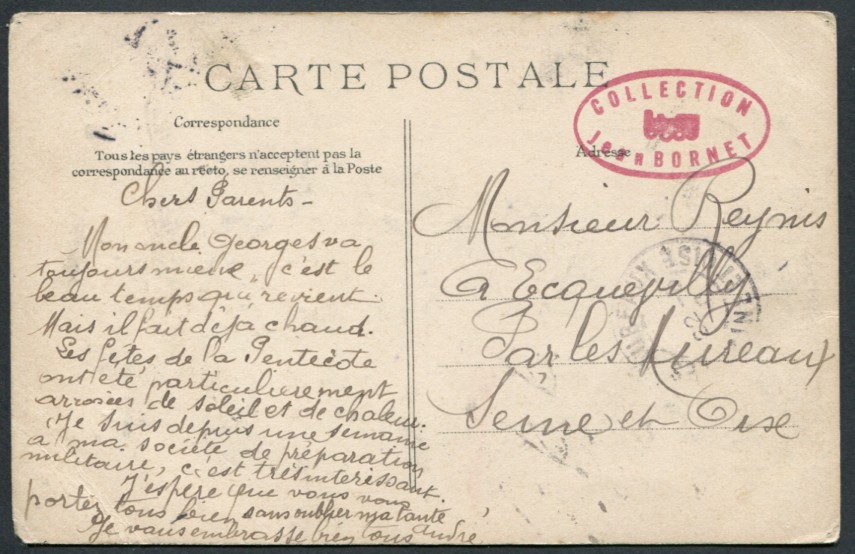 CARTE POSTALE
COLLECTION
Jean BORNET
Correspondance
Adresse
Tous les pays étrangers n'acceptent pas la
correspondance au recto, se renseigner à la Poste
Chers Parents -
Mon oncle Georges va
toujours mieux, c'est le
beau temps qui revient.
Mais il fait déjà chaud.
Les fêtes de la Pentecôte
ont été particulièrement
arrosées de soleil et de chaleur.
Je suis depuis une semaine
à ma société de préparation
militaire, c'est très intéressant.
J'espère que vous vous
portez tous bien sans oublier ma tante
Je vous embrasse bien tous André
Monsieur Reynis
à Ecquevilly
Par les Mureaux
Seine et Oise